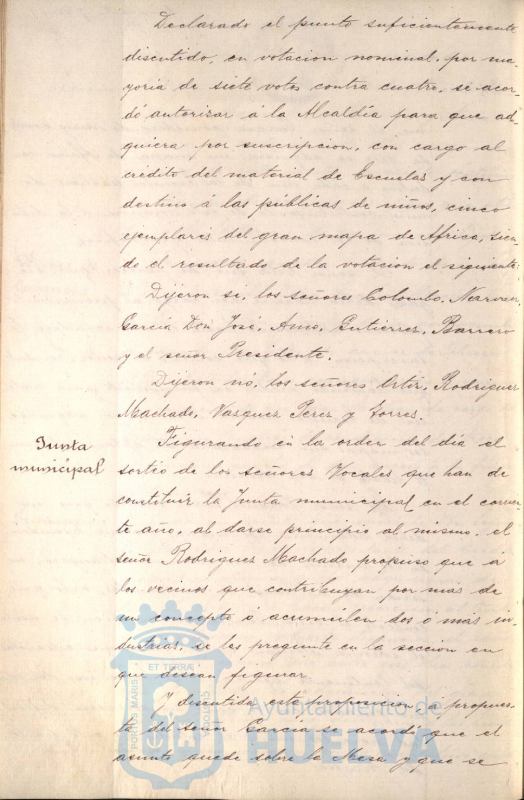 Declarado el punto suficientemente
discutido, en votacion nominal, por ma-
yoria de siete votos contra cuatro, se acor-
dó autorizar á la Alcaldía para que ad-
quiera por suscripcion, con cargo al
crédito del material de Escuelas y con
destino á las públicas de niños, cinco
ejemplares del gran mapa de Africa, sien-
do el resultado de la votacion el siguiente:
Dijeron si, los señores Colombo, Narvaez,
García Don José, Amo, Gutierrez, Barrero
y el señor Presidente.
Dijeron nó, los señores Ortiz, Rodriguez
Machado, Vazquez Perez y Torres.
Junta
municipal
Figurando en la orden del dia el
sorteo de los señores Vocales que han de
constituir la Junta municipal en el corrien-
te año, al darse principio al mismo, el
señor Rodriguez Machado propuso que á
los vecinos que contribuyan por mas de
un concepto ó acumulen dos ó mas in-
dustrias, se les pregunte en la seccion en
que desean figurar.
Y discutida esta proposicion á propues-
ta del señor García se acordó que el
asunto quede sobre la Mesa y que se
PORTUS MARIS
ET TERRÆ
CUSTODIA
Ayuntamiento de
HUELVA